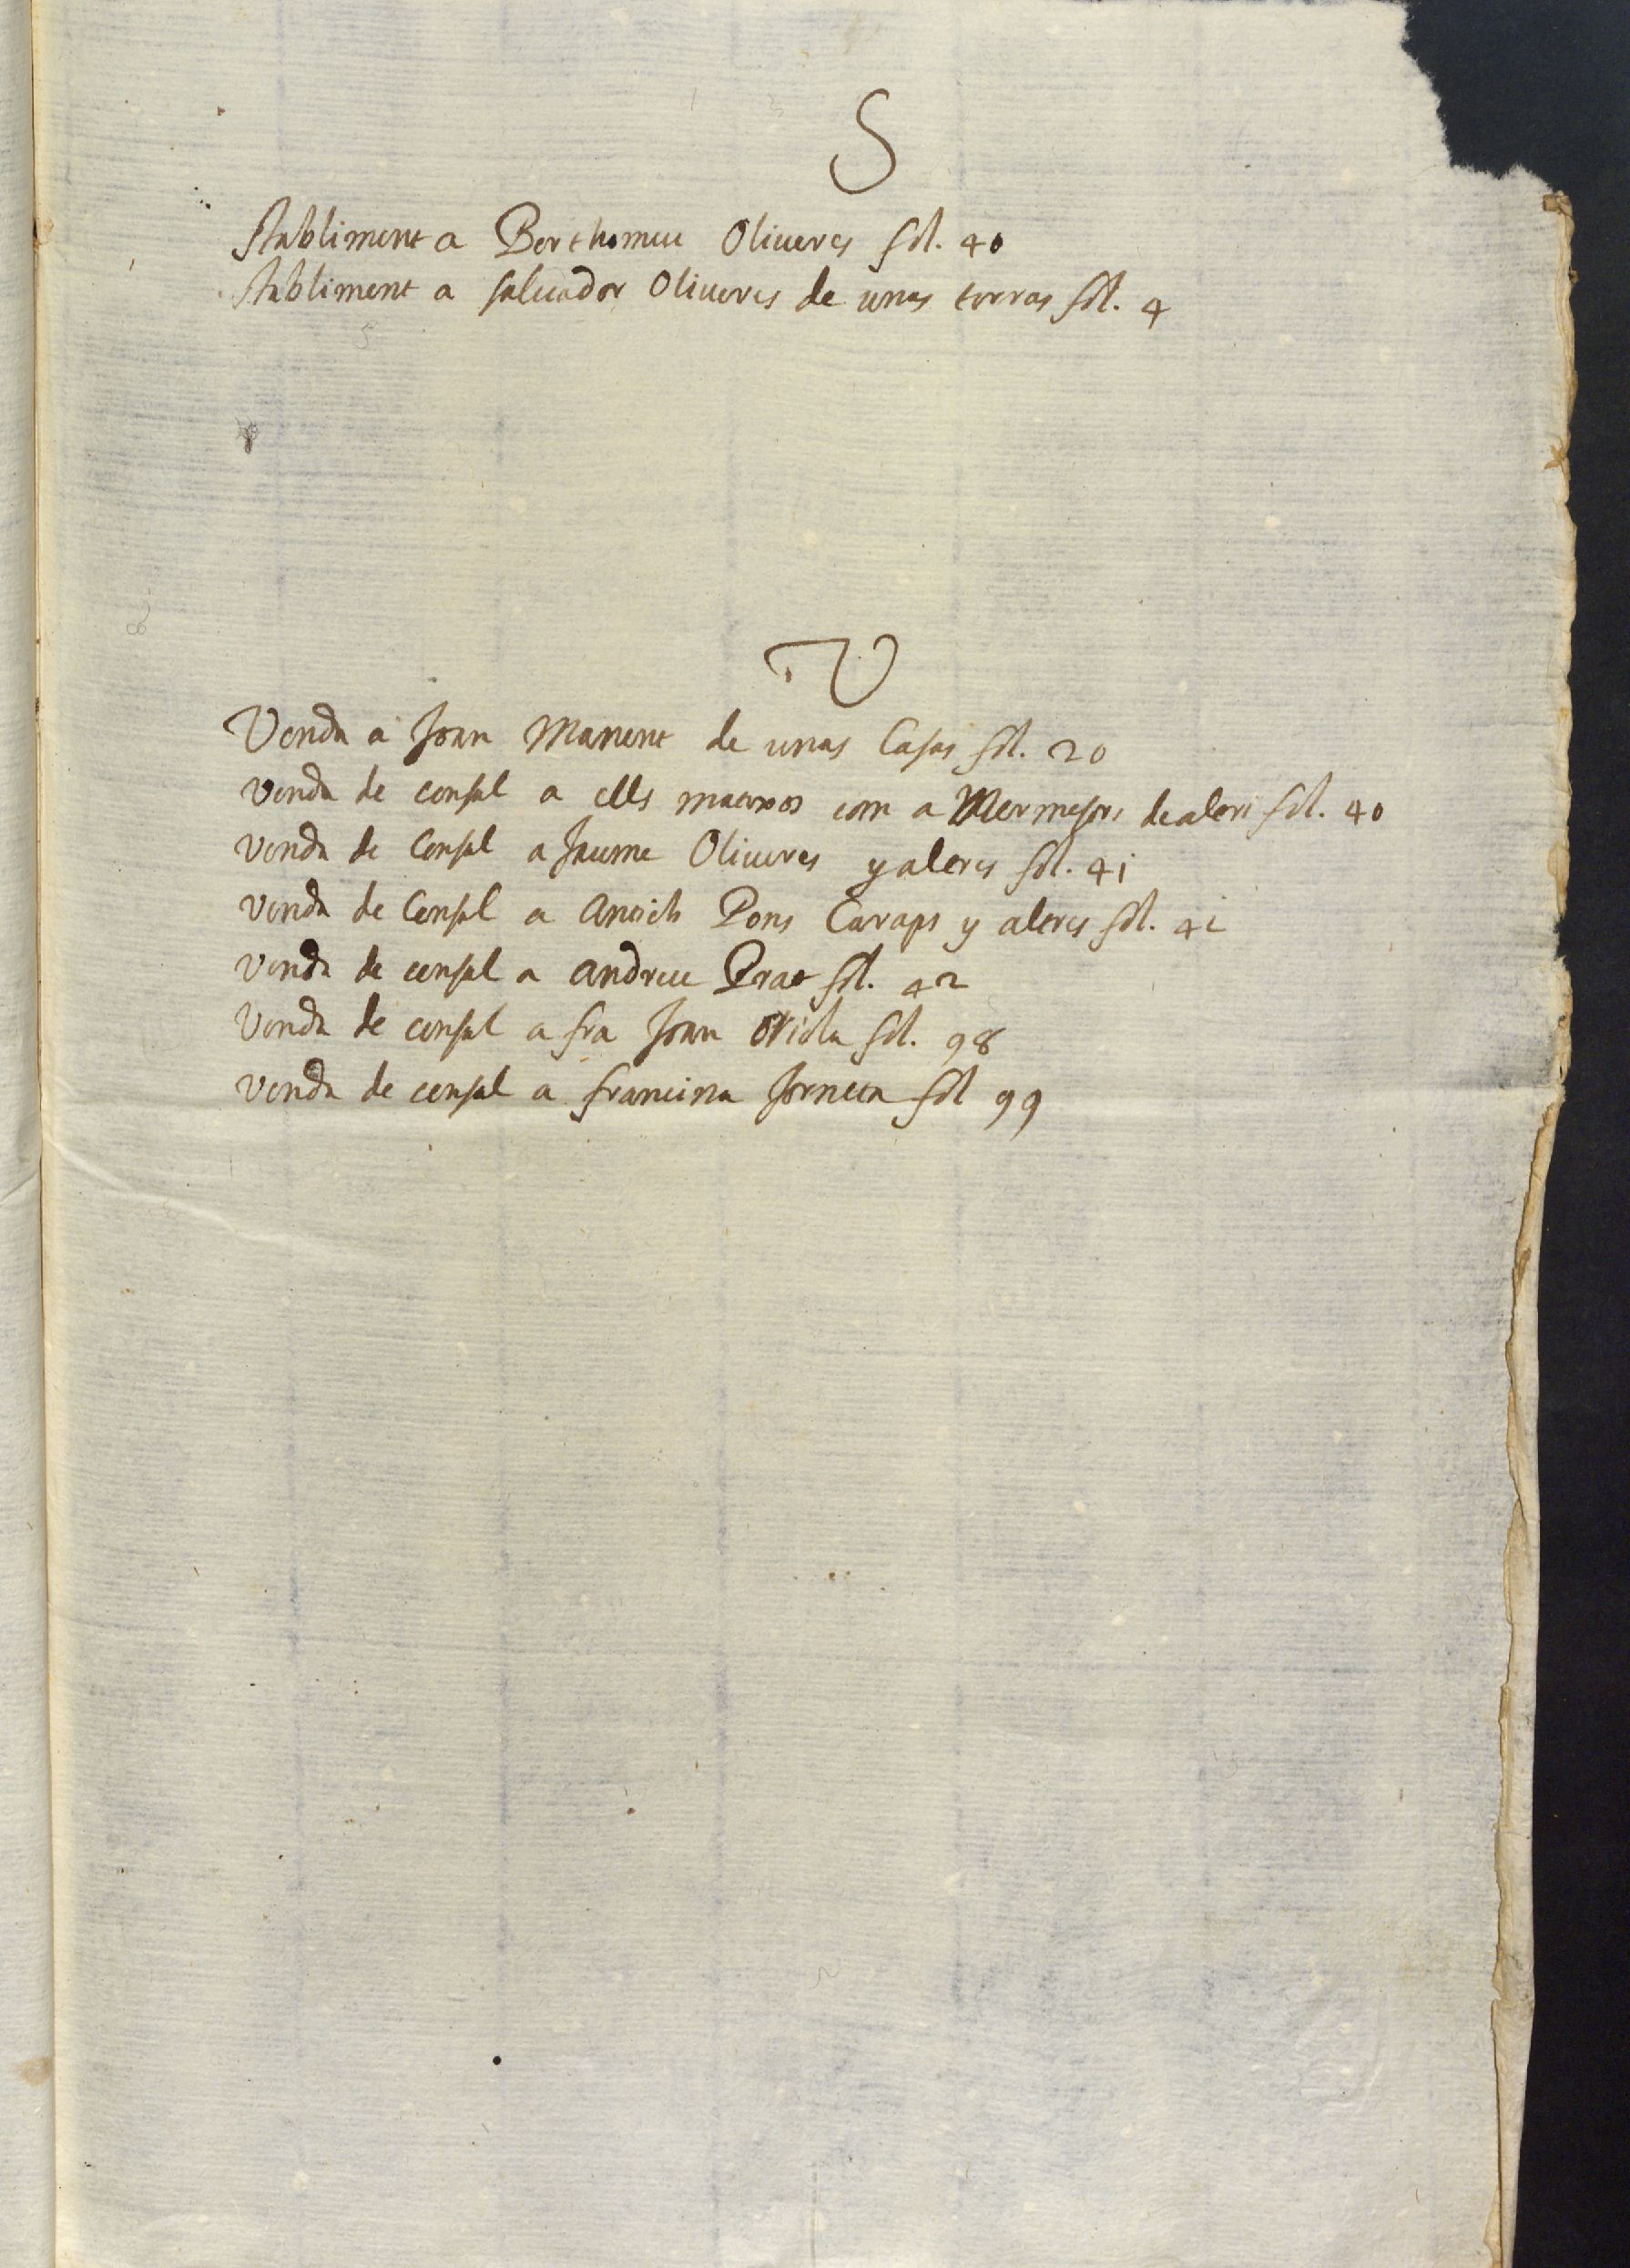 S
Stabliment a Berthomeu Oliueres fol. 40
Stabliment a saluador Oliueres de unas terras fol. 4
V
Venda a Joan Manent de unas Casas fol. 20
venda de censal a ells matexos com a Mermesors de altri fol. 40
venda de Censal a Jaume Oliueres y altres fol. 41
venda de Censal a Antich Pons Caraps y altres fol. 41
venda de censal a Andreu Prat fol. 42
Venda de censal a fra Joan Oriola fol. 98
venda de censal a francina Jorneta fol 99